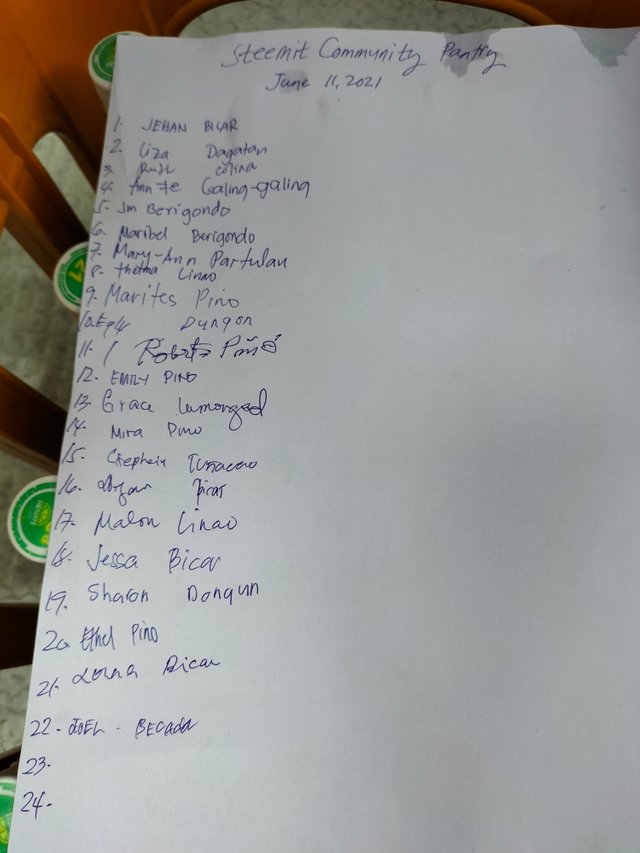 Steemit Community Pantry
June 11, 2021
1. JEHAN BICAR
2. Liza Dagatan
3. Ruth colina
4. Ann Te Galing-galing
5. Jm Berigondo
6. Maribel Berigondo
7. Mary-Ann Partulan
8. thelma Linao
9. Marites Pino
10. Dungon
11. Roberto Piño
12. EMILY PINO
13. Grace
14. Mira Pino
15.
16. Bicar
17. Malon Linao
18. Jessa Bicar
19. Sharon Dongun
20 Ethel Pino
21. Lorna Bicar
22. JOEL - BECADA
23.
24.